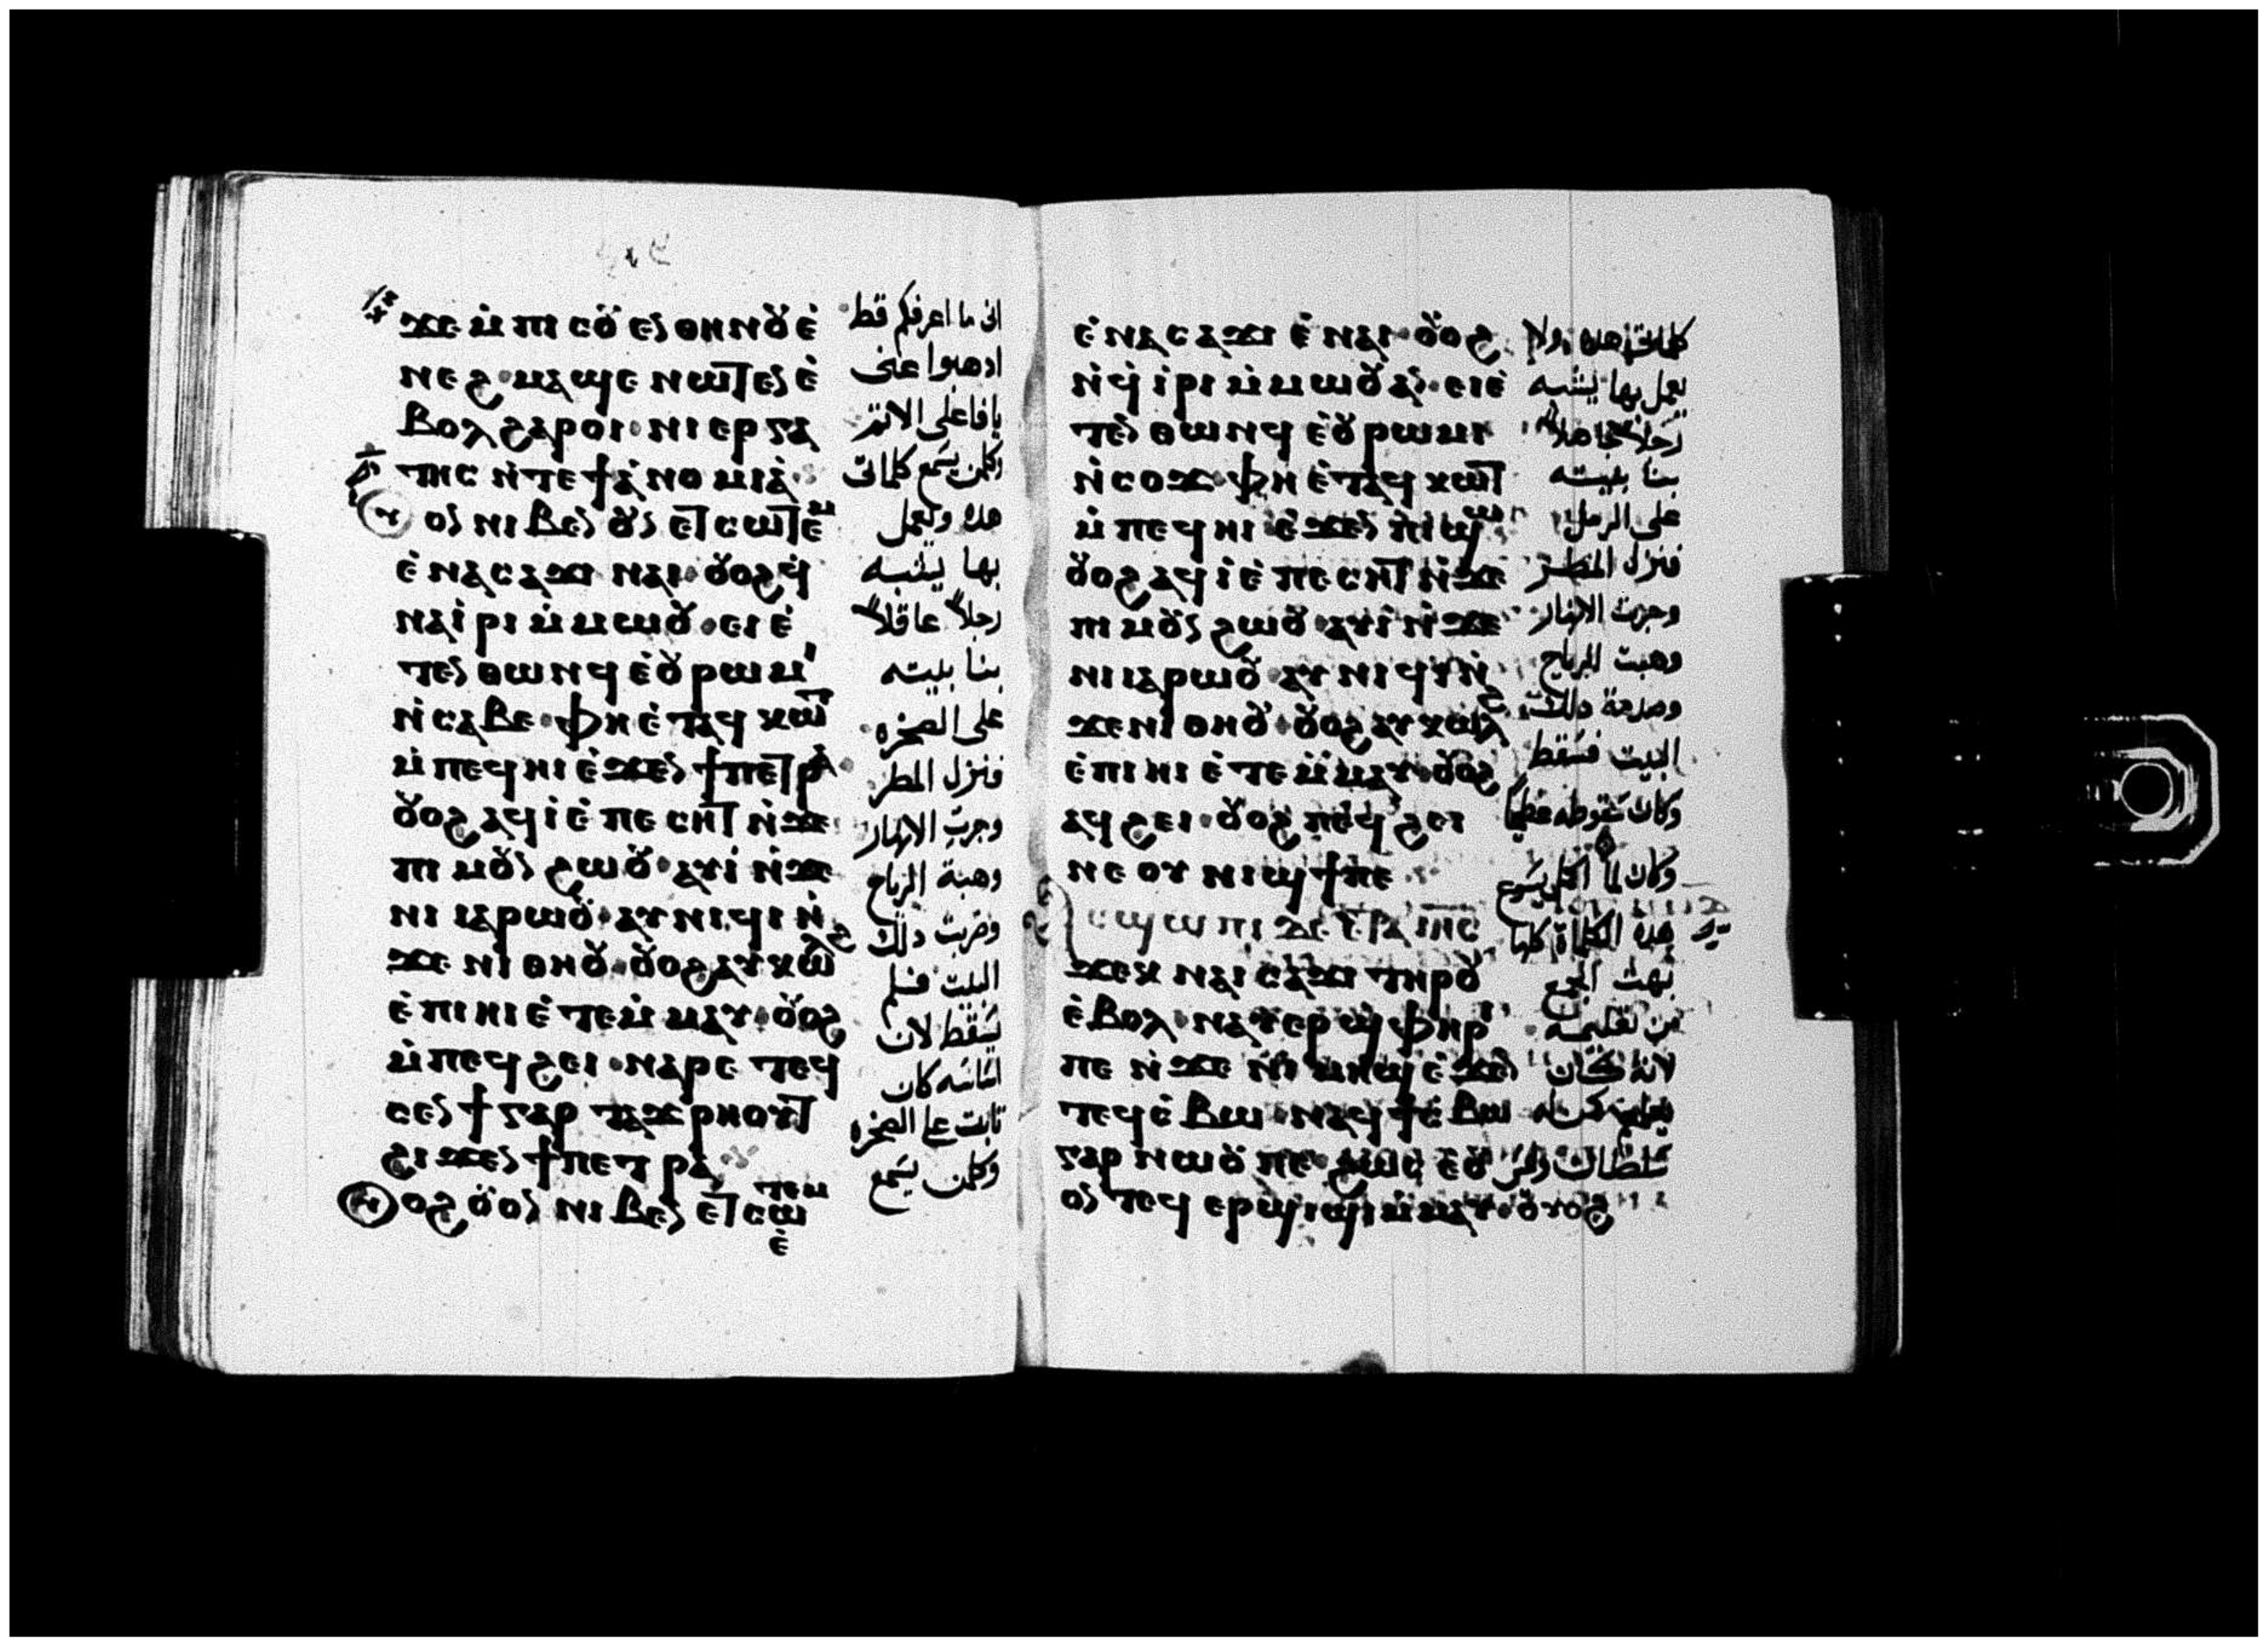 ϫⲉ ⲙ̇ⲡⲓ ⲥⲟⲩ ⲉⲛ ⲑⲏⲛⲟⲩ ⲉ̇
ⲛⲉϩ · ⲙⲁϣⲉ ⲛⲱⲧⲉⲛ ⲉ̇
ⲃⲟⲗ ϩⲁⲣⲟⲓ · ⲛⲓ ⲉⲣⲅⲁ
ⲧⲏⲥ ⲛ̇ⲧⲉ ϯⲁ̇ⲛⲟⲙⲓⲁ̇
ⲟⲛ ⲛⲓⲃⲉⲛ ⲟⲩⲛ ⲉⲧⲥⲱⲧⲉⲙ
ⲉ̇ⲛⲁⲥⲁϫⲓ ⲛⲁⲓ · ⲟⲩⲟϩ ϥ̇
ⲛⲁⲓ̇ⲣⲓ ⲙ̇ⲙⲱⲟⲩ · ⲉⲓⲉ̇
ⲧⲉⲛⲑⲱⲛϥ ⲉ̇ⲟⲩⲣⲱⲙⲓ
ⲛ̇ⲥⲁⲃⲉ · ⲫⲏ ⲉ̇ⲧⲁϥⲕⲱⲧ
ⲙ̇ⲡⲉϥⲏⲓ ⲉ̇ϫⲉⲛ ϯⲡⲉⲧⲣⲁ
ⲟⲩⲟϩ ⲁϥⲓ̇ ⲉ̇ⲡⲉⲥⲏⲧ ⲛ̇ϫⲉ
ⲡⲓ ⲙⲟⲩⲛϩⲱⲟⲩ · ⲁⲩⲓ̇ ⲛ̇ϫⲉ
ⲛⲓ ⲓⲁⲣⲱⲟⲩ · ⲁⲩⲛⲓϥⲓ ⲛ̇
ϫⲉ ⲛⲓ ⲑⲏⲟⲩ · ⲟⲩⲟϩ ⲁⲩⲕⲱⲗϩ
ⲉ̇ⲡⲓⲏⲓ ⲉ̇ⲧⲉⲙ̇ⲙⲁⲩ · ⲟⲩⲟϩ
ⲙ̇ⲡⲉϥϩⲉⲓ · ⲛⲁⲣⲉ ⲧⲉϥ
ⲥⲉⲛϯ ⲅⲁⲣ ⲧⲁϫⲣⲏⲟⲩⲧ
ϩⲓϫⲉⲛ ϯⲡⲉⲧⲣⲁ
ⲟϩ ⲟⲩⲟⲛ ⲛⲓⲃⲉⲛ ⲉⲧⲥⲱⲧⲉⲙ
ⲉ̇
انى ما اعرفكم قط
ادهبوا عنى
يا فاعلى الاتم
وكلمن يسمع كلماتى
هده ويعمل
بها يشبه
رجلاً عاقلاً
بنا بيته
على الصخره
فنزل المطر
وجرت الانهار
وهبة الرياح
وضربت دلك
البيت فلم
يسقط لان
اساسه كان
تابت على الصخره
وكلمن يسمع
ⲉ̇ⲛⲁⲥⲁϫⲓ ⲉ̇ⲛⲁⲓ · ⲟⲩⲟϩ
ⲛ̇ϥ̇ⲓ̇ⲣⲓ ⲙ̇ⲙⲱⲟⲩ ⲁⲛ · ⲉⲓⲉ̇
ⲧⲉⲛⲑⲱⲛϥ ⲉ̇ⲟⲩⲣⲱⲙⲓ
ⲛ̇ⲥⲟϫ · ⲫⲏ ⲉ̇ⲧⲁϥⲕⲱⲧ
ⲙ̇ⲡⲉϥⲏⲓ ⲉ̇ϫⲉⲛ ⲡⲓϣⲱ
ⲟⲩⲟϩ ⲁϥⲓ̇ ⲉ̇ⲡⲉⲥⲏⲧ ⲛ̇ϫⲉ
ⲡⲓ ⲙⲟⲩⲛϩⲱⲟⲩ · ⲁⲩⲓ̇ ⲛ̇ϫⲉ
ⲛⲓ ⲓⲁⲣⲱⲟⲩ · ⲁⲩⲛⲓϥⲓ ⲛ̇
ϫⲉ ⲛⲓ ⲑⲏⲟⲩ · ⲟⲩⲟϩ ⲁⲩⲕⲱⲗϩ
ⲉ̇ⲡⲓⲏⲓ ⲉ̇ⲧⲉⲙ̇ⲙⲁⲩ · ⲟⲩⲟϩ
ⲁϥϩⲉⲓ · ⲟⲩⲟϩ ⲡⲉϥϩⲉⲓ
ⲛⲉ ⲟⲩ ⲛⲓϣϯ ⲡⲉ
ⲥϣⲱⲡⲓ ⲇⲉ ⲉⲧⲁ ⲓⲏⲥ
ϫⲉⲕ ⲛⲁⲓⲥⲁϫⲓ ⲧⲏⲣⲟⲩ
ⲉ̇ⲃⲟⲗ · ⲛⲁⲩⲉⲣϣⲫⲏⲣⲓ
ⲡⲉ ⲛ̇ϫⲉ ⲛⲓ ⲙⲏϣ ⲉ̇ϫⲉⲛ
ⲧⲉϥⲉ̇ⲃⲱ · ⲛⲁϥϯⲉ̇ⲃⲱ
ⲅⲁⲣ ⲛⲱⲟⲩ ⲡⲉ · ϩⲱⲥ ⲉ̇ⲟⲩ
ⲟⲛ ⲧⲉϥ ⲉⲣϣⲓϣⲓ ⲙ̇ⲙⲁⲩ · ⲟⲩⲟϩ
كلماتى هده ولا
يعمل بها يشبه
رجلاً جاهلاً
بنا بيته
على الرمل
فنزل المطر
وجرت الانهار
وهبت الرياح
وصدمة دلك
البيت فسقط
وكان سقوطه عظيماً
وكان لما اكمل يسوع
هده الكلمات كلها
بهت الجمع
من تعليمه
لانه كان
يعلمهم كمن له
سلطان وليس